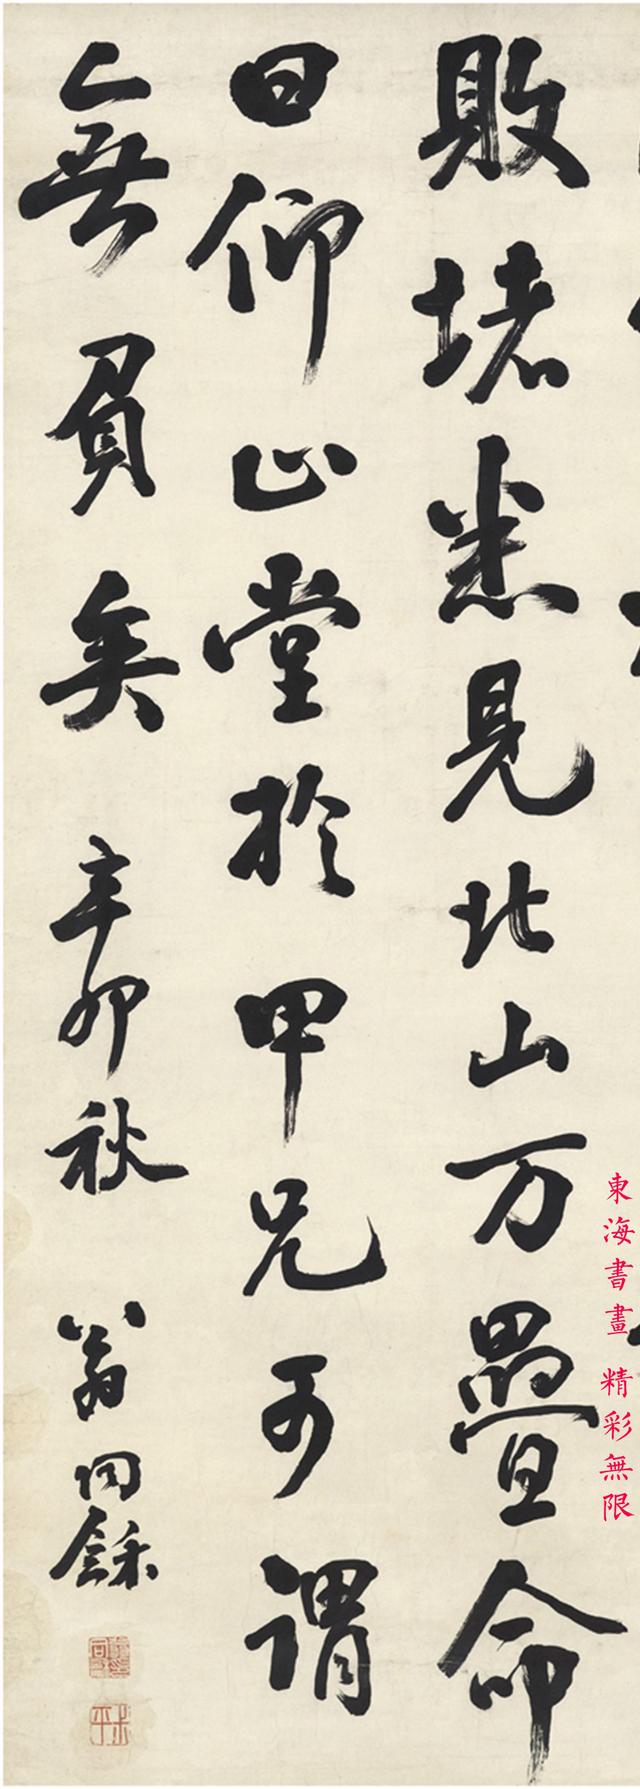 敗堵悉見北山万疊命
曰仰山堂於甲兄可謂
無負矣 辛卯秋 翁同龢
東海書畫 精彩無限
叔平